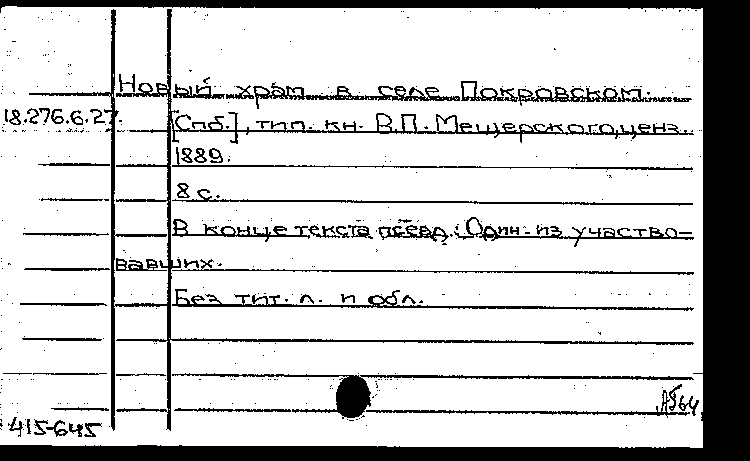 Новый храм в селе Покровском.
18.276.6.27. [Спб.], тип. кн. В.П. Мещерского, ценз.
1889.
8 с.
В конце текста псевд.: Один из участво-
вавших.
Без тит. л. и обл.
415-645